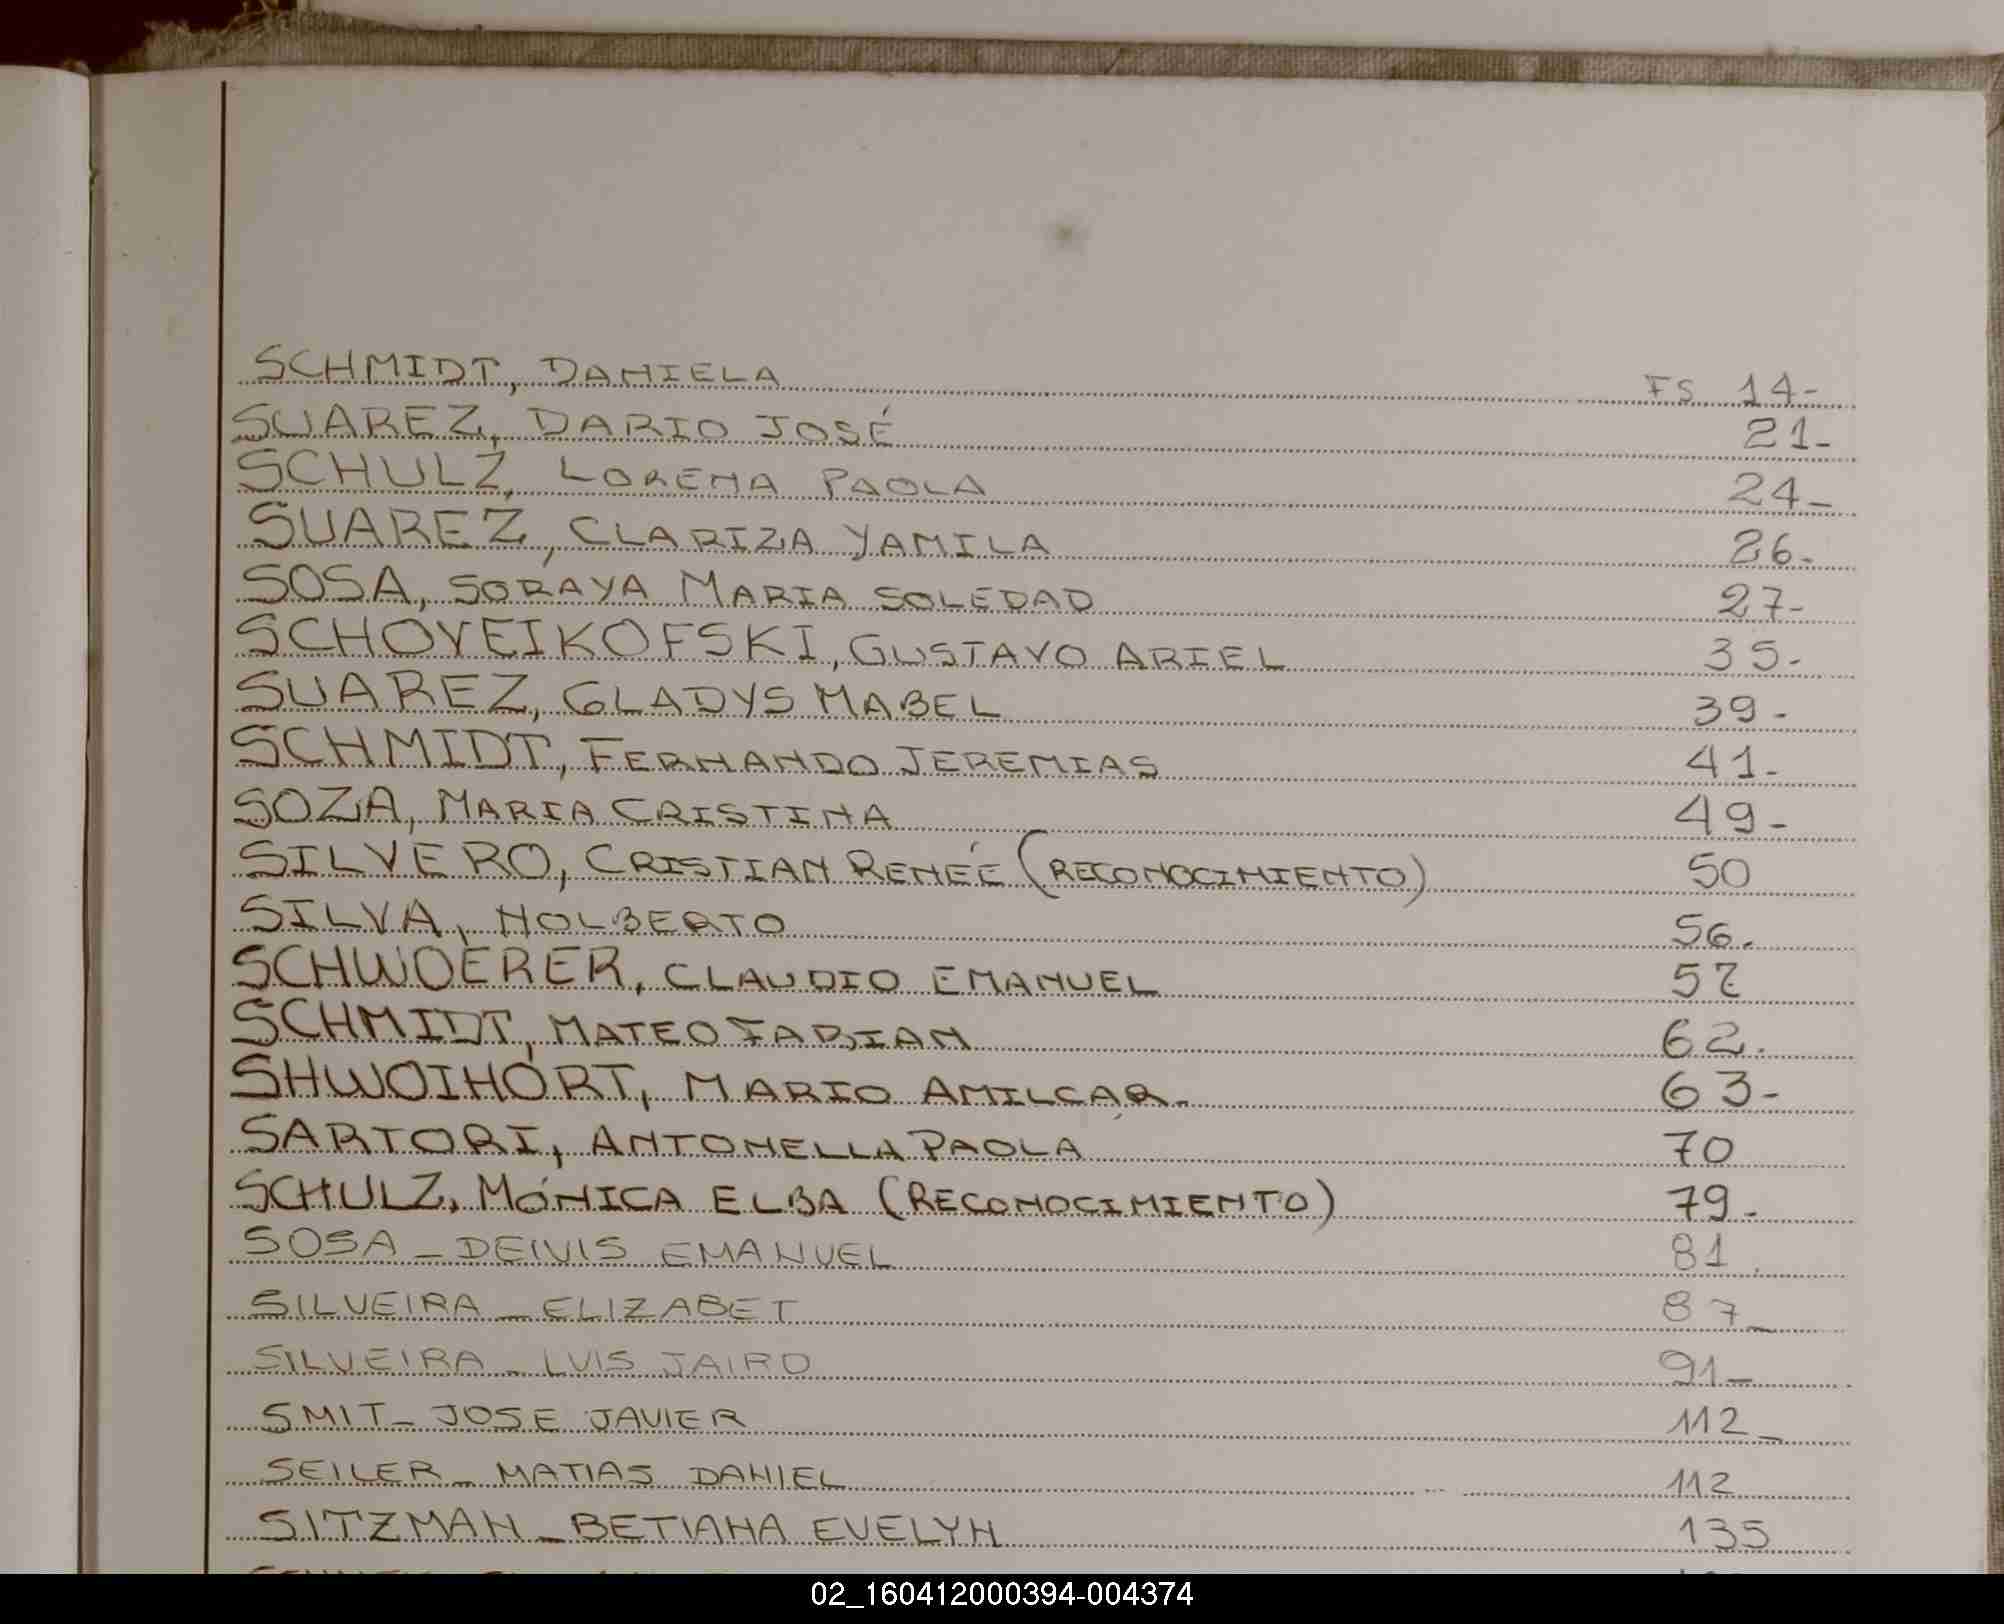 SCHMIDT, DANIELA FS 14-
SUAREZ, DARIO JOSÉ 21-
SCHULZ, LORENA PAOLA 24-
SUAREZ, CLARIZA YAMILA 26-
SOSA, SORAYA MARIA SOLEDAD 27-
SCHOVEIKOFSKI, GUSTAVO ARIEL 35-
SUAREZ, GLADYS MABEL 39-
SCHMIDT, FERNANDO JEREMIAS 41-
SOZA, MARIA CRISTINA 49-
SILVERO, CRISTIAN RENÉE (RECONOCIMIENTO) 50
SILVA, NOLBERTO 56.
SCHWOERER, CLAUDIO EMANUEL 57
SCHMIDT, MATEO FABIAN 62.
SHWOIHORT, MARIO AMILCAR- 63-
SARTORI, ANTONELLA PAOLA 70
SCHULZ, MÓNICA ELBA (RECONOCIMIENTO) 79-
SOSA - DEIVIS EMANUEL 81
SILVEIRA - ELIZABET 87-
SILVEIRA - LUIS JAIRO 91-
SMIT - JOSE JAVIER 112-
SEILER - MATIAS DANIEL 112
SITZMAN - BETIANA EVELYN 135
02_160412000394-004374